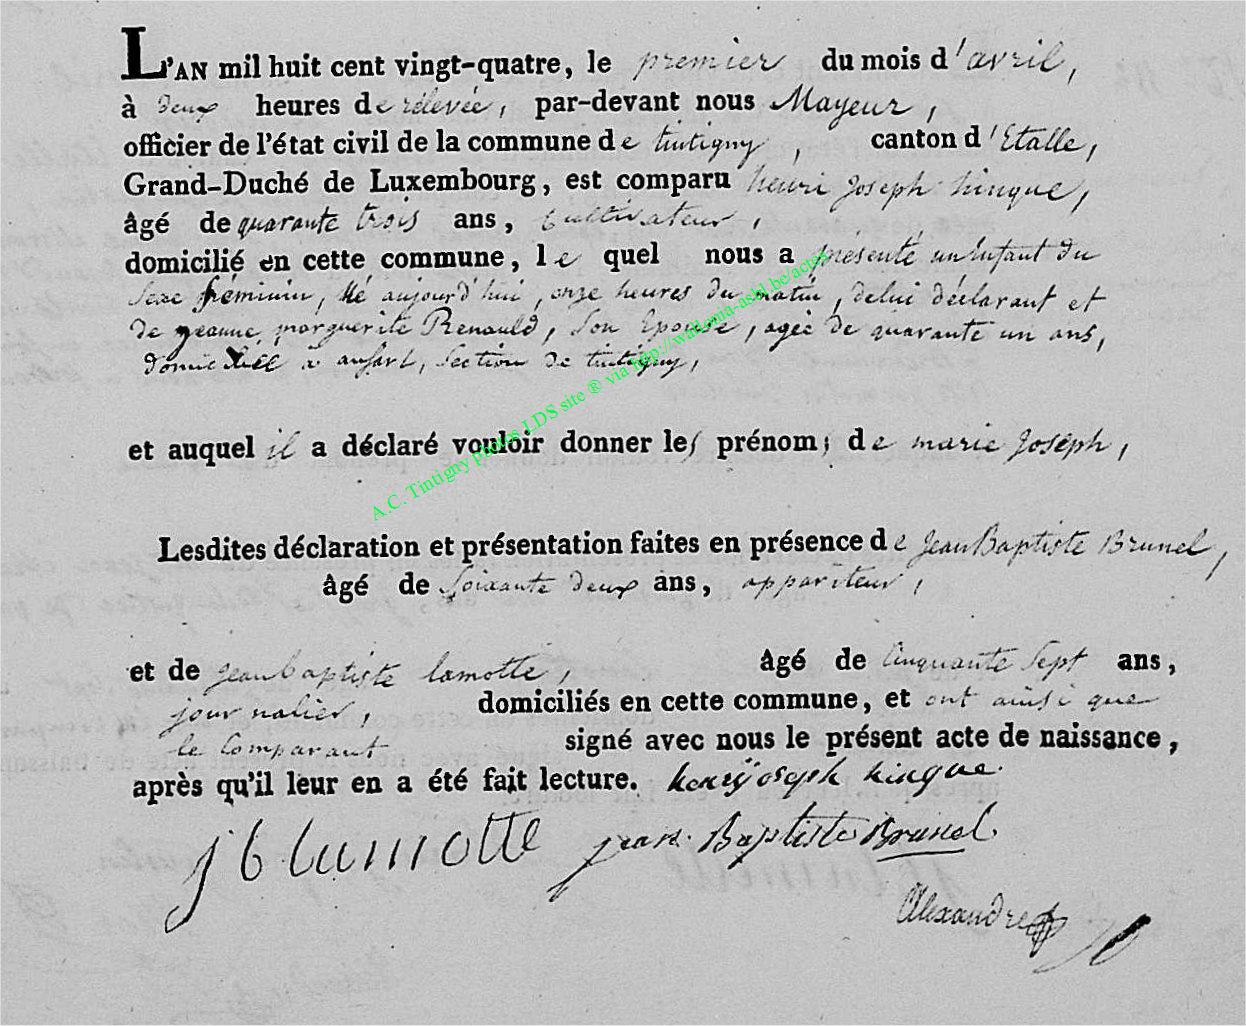 L'AN mil huit cent vingt-quatre, le premier du mois d'avril,
à deux heures de rélevée, par-devant nous Mayeur,
officier de l'état civil de la commune de tintigny, canton d'Etalle,
Grand-Duché de Luxembourg, est comparu henri joseph hinque,
âgé de quarante trois ans, cultivateur,
domicilié en cette commune, le quel nous a présenté un Enfant du
Sexe féminin, né aujourd'hui, onze heures du matin, de lui déclarant et
de jeanne marguerite Renauld, Son Epouse, agée de quarante un ans,
domiciliée à ansart, Section de tintigny,
et auquel il a déclaré vouloir donner les prénoms de marie joseph,
Lesdites déclaration et présentation faites en présence de jean Baptiste Brunel,
âgé de Soixante deux ans, appariteur,
et de jean baptiste lamotte, âgé de Cinquante Sept ans,
journalier, domiciliés en cette commune, et ont ainsi que
le Comparant signé avec nous le présent acte de naissance,
après qu'il leur en a été fait lecture. henrij joseph hinque
j b lamotte jean Baptiste Brunel
Alexandre
A.C. Tintigny photos LDS site ® via http://wallonia-asbl.be/actes